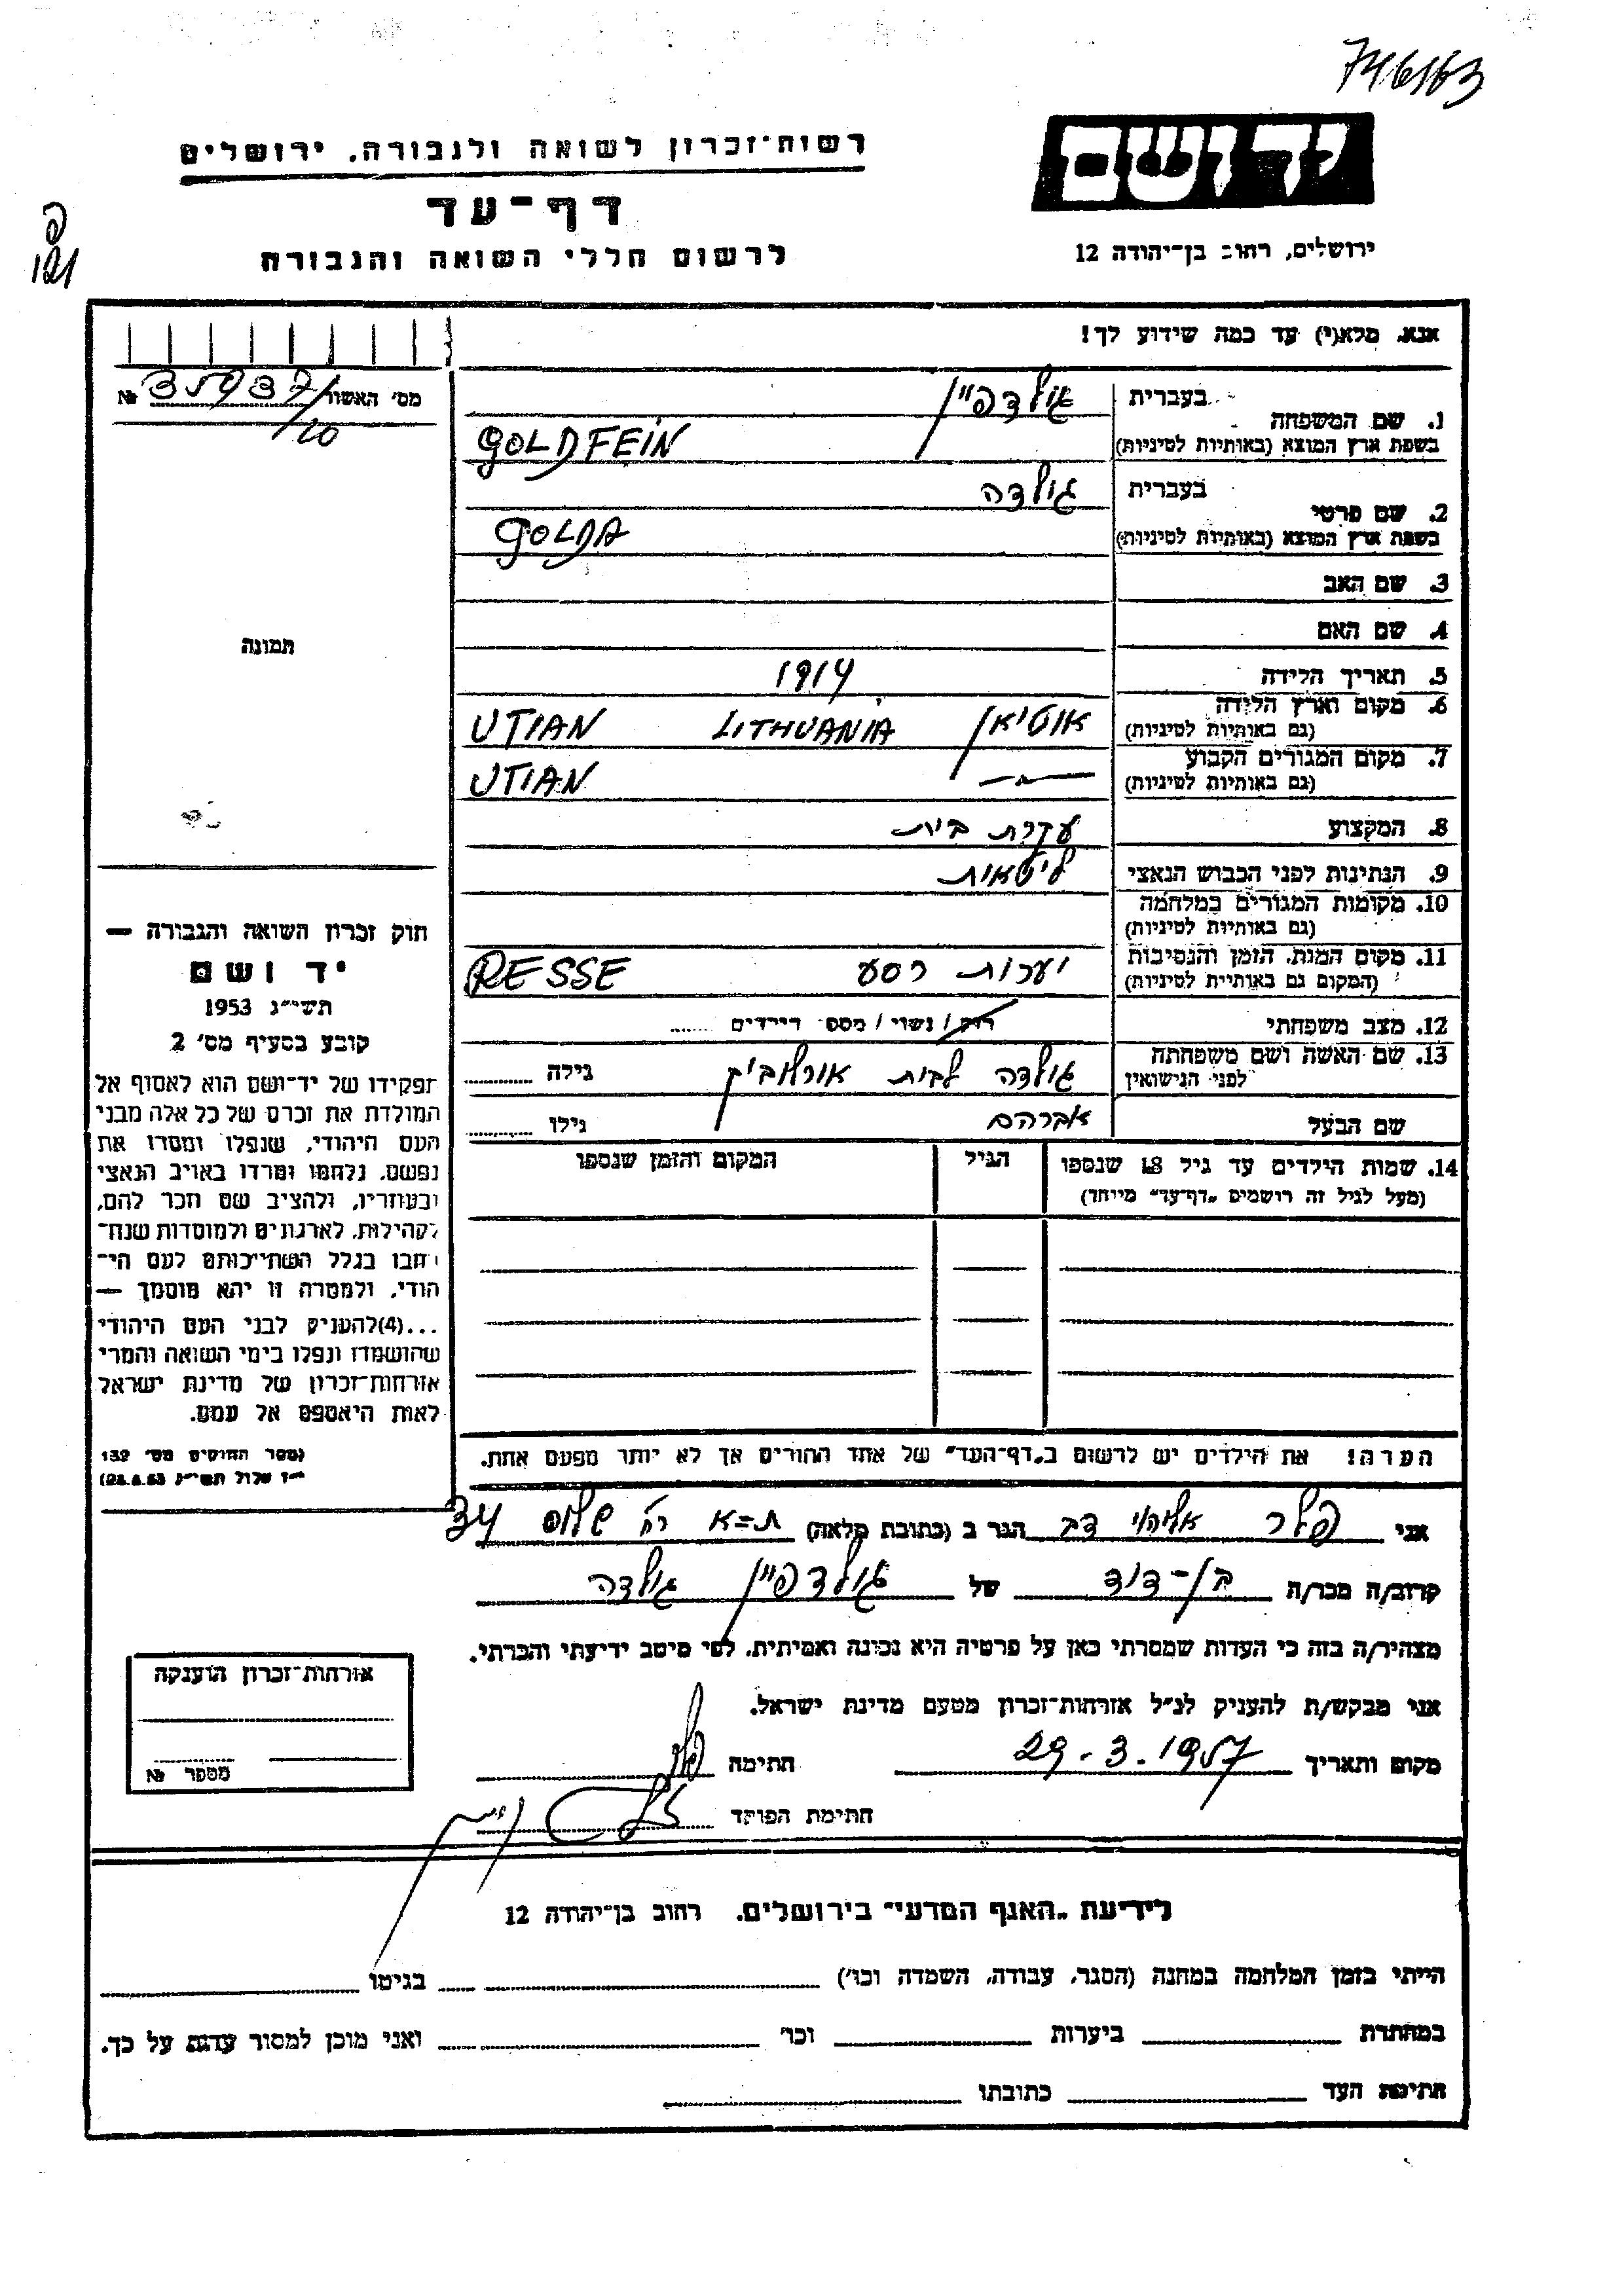 746163
רשות־זכרון לשואה ולגבורה. ירושלים
יד ושם
דף־עד
ירושלים, רחוב בן־יהודה 12
לרשום חללי השואה והגבורה
פ
121
אנא, מלא(י) עד כמה שידוע לך!
מס׳ האשור 35937 №
/20
1. שם המשפחה
בעברית גולדפיין
בשפת ארץ המוצא (באותיות לטיניות) GOLDFEIN
2. שם פרטי
בעברית גולדה
בשפת ארץ המוצא (באותיות לטיניות) GOLDA
3. שם האב
4. שם האם
תמונה
5. תאריך הלידה 1914
6. מקום וארץ הלידה אוטיאן LITHUANIA UTIAN
(גם באותיות לטיניות)
7. מקום המגורים הקבוע —״— UTIAN
(גם באותיות לטיניות)
8. המקצוע עקרת בית
9. הנתינות לפני הכבוש הנאצי ליטאית
10. מקומות המגורים במלחמה
(גם באותיות לטיניות)
11. מקום המות, הזמן והנסיבות יערות רסע RESSE
(המקום גם באותיות לטיניות)
12. מצב משפחתי רווק / נשוי / מספר הילדים
13. שם האשה ושם משפחתה גולדה לבית אורלוביץ גילה
לפני הנישואין
שם הבעל אברהם גילו
14. שמות הילדים עד גיל 18 שנספו הגיל המקום והזמן שנספו
(מעל לגיל זה רושמים „דף־עד״ מיוחד)
הערה! את הילדים יש לרשום ב„דף־העד״ של אחד ההורים אך לא יותר מפעם אחת.
חוק זכרון השואה והגבורה —
יד ושם
תשי״ג 1953
קובע בסעיף מס׳ 2
תפקידו של יד־ושם הוא לאסוף אל
המולדת את זכרם של כל אלה מבני
העם היהודי, שנפלו ומסרו את
נפשם, נלחמו ומרדו באויב הנאצי
ובעוזריו, ולהציב שם וזכר להם,
לקהילות, לארגונים ולמוסדות שנח־
רבו בגלל השתייכותם לעם הי־
הודי, ולמטרה זו יהא מוסמך —
...(4)להעניק לבני העם היהודי
שהושמדו ונפלו בימי השואה והמרי
אזרחות־זכרון של מדינת ישראל
לאות היאספם אל עמם.
(ספר החוקים מס׳ 132
י״ז אלול תשי״ג 28.8.53)
אני פלר אליהו דב הגר ב (כתובת מלאה) ת=א רח׳ שלום 34
קרוב/ה מכר/ה בן-דוד של גולדפיין גולדה
מצהיר/ה בזה כי העדות שמסרתי כאן על פרטיה היא נכונה ואמיתית, לפי מיטב ידיעתי והכרתי.
אני מבקש/ת להעניק לנ״ל אזרחות־זכרון מטעם מדינת ישראל.
מקום ותאריך 29.3.1957 חתימה
חתימת הפוקד
אזרחות־זכרון הוענקה
מספר №
לידיעת „האגף המדעי״ בירושלים, רחוב בן־יהודה 12
הייתי בזמן המלחמה במחנה (הסגר, עבודה, השמדה וכו׳) בגיטו
במחתרת ביערות וכו׳ ואני מוכן למסור עדות על כך.
חתימת העד כתובתו